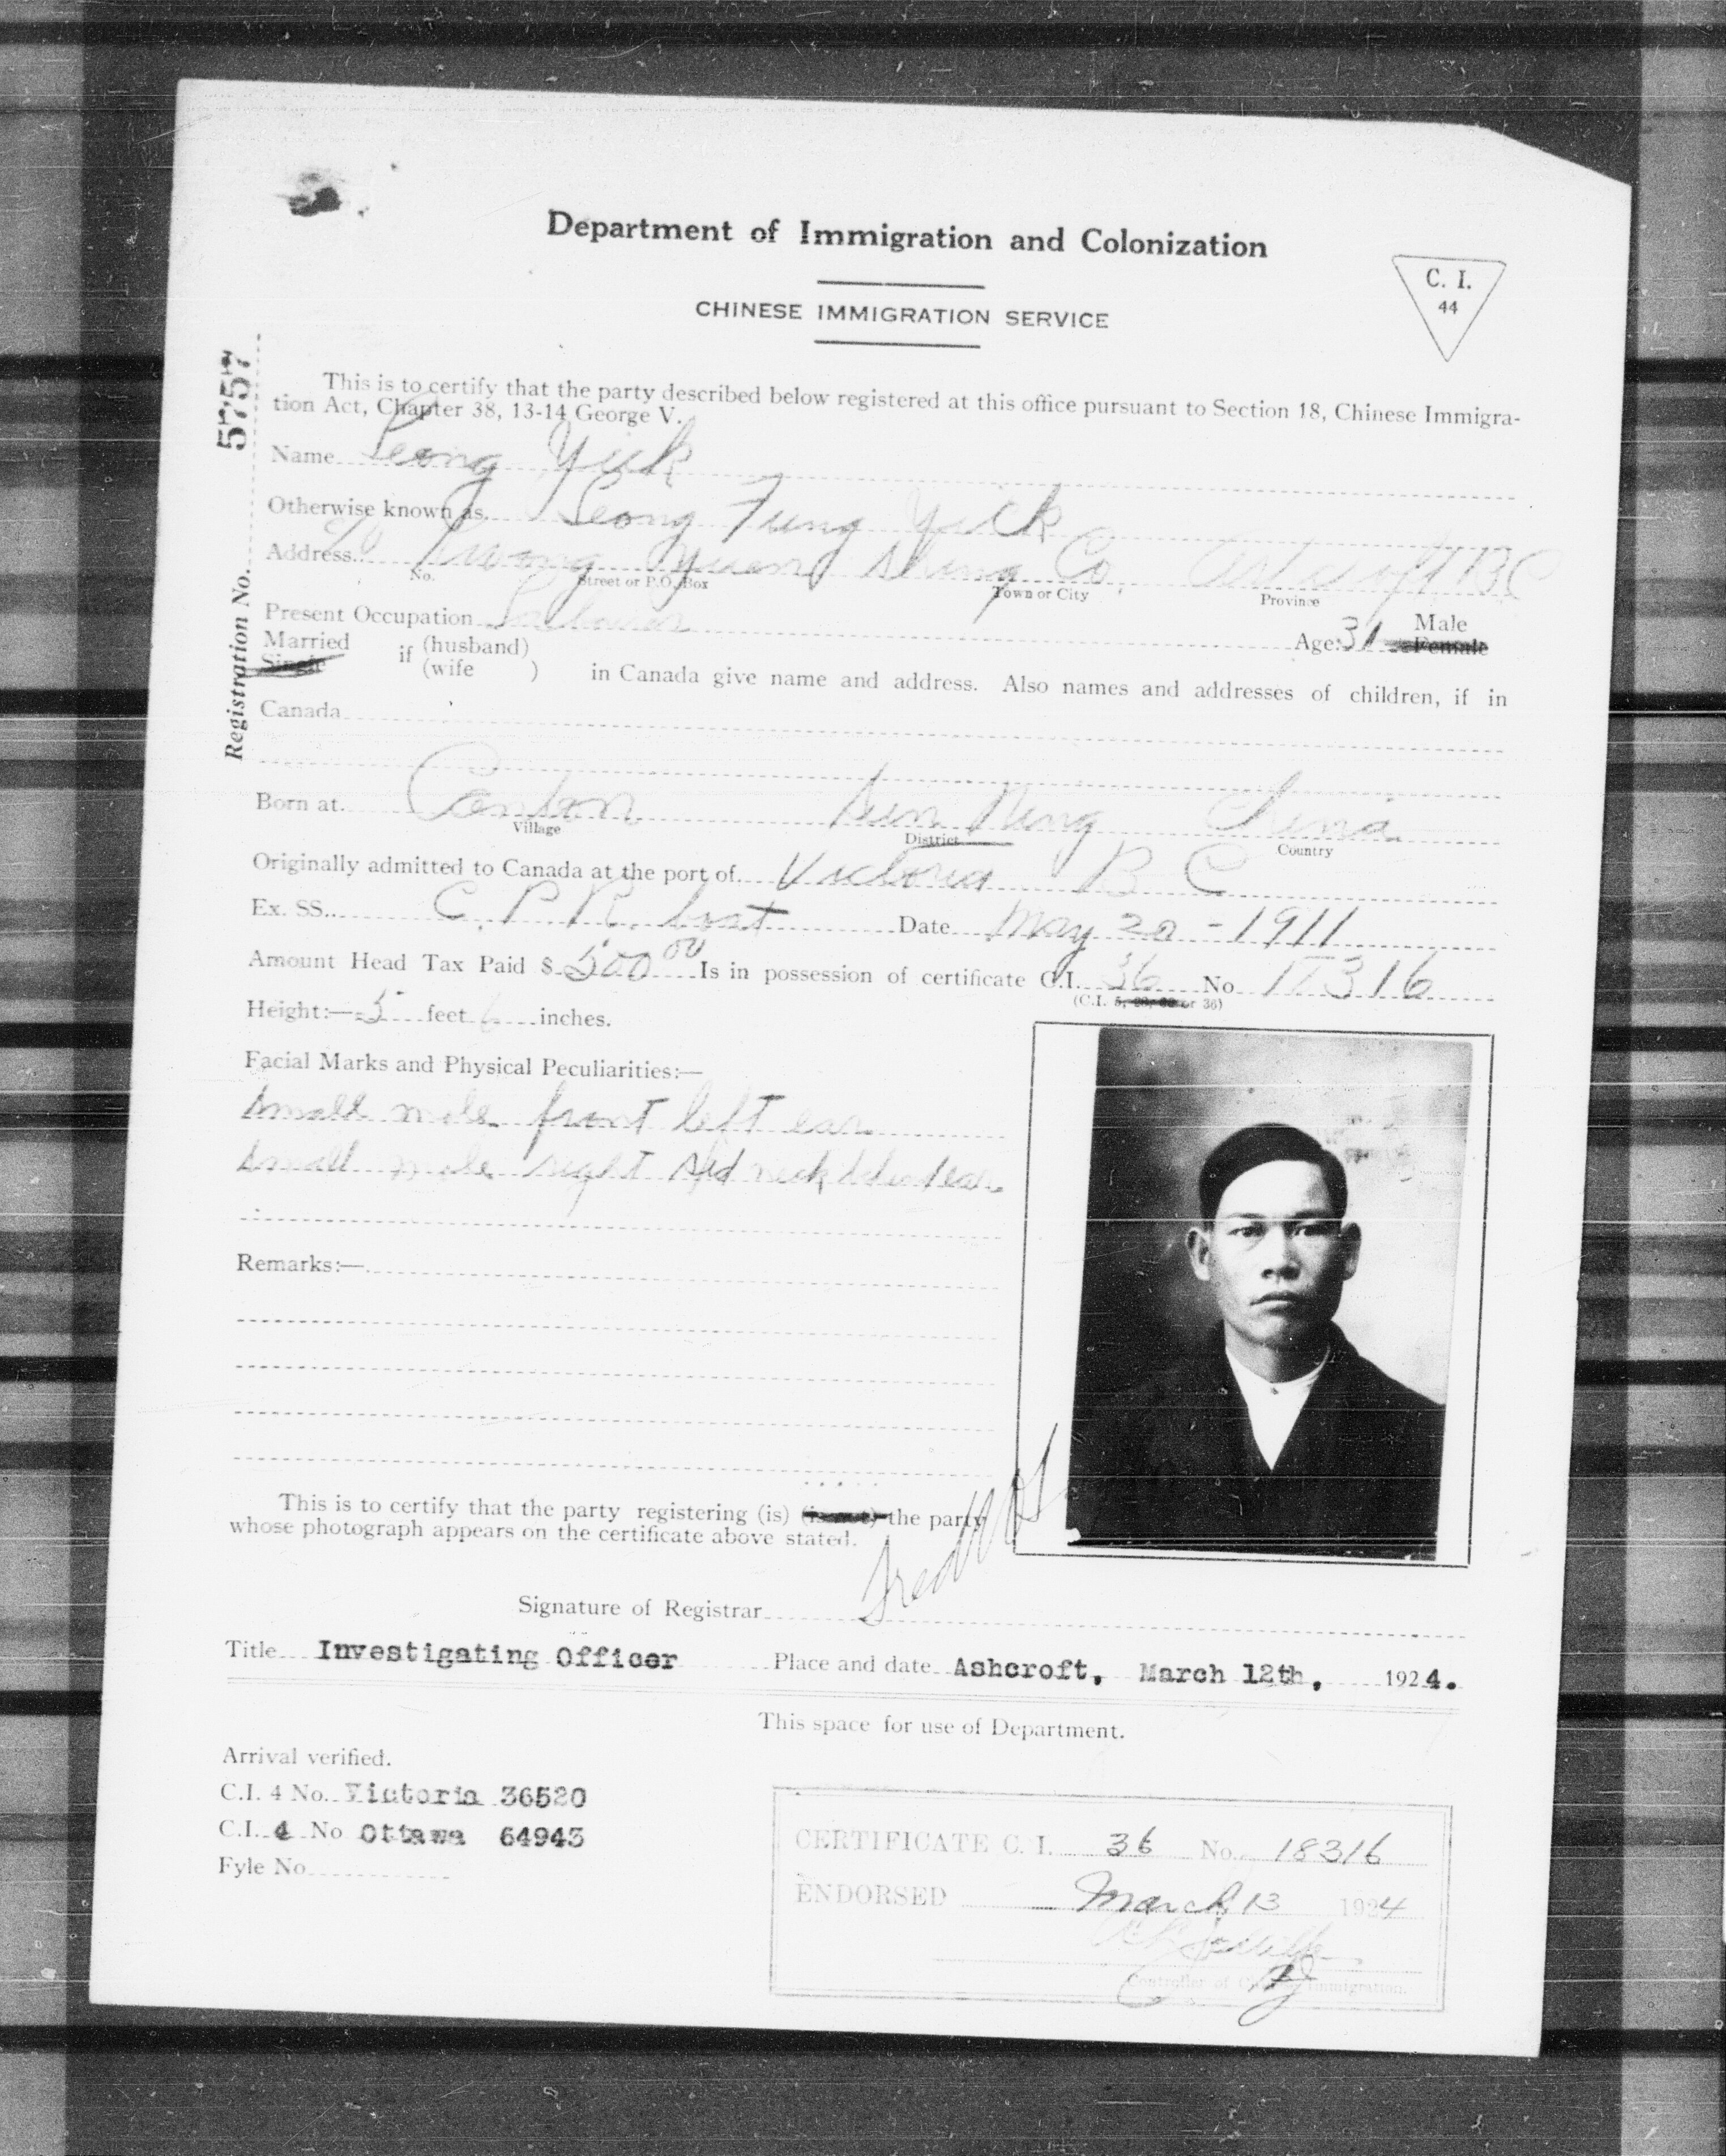 Department of Immigration and Colonization
CHINESE IMMIGRATION SERVICE
C. I.
44
Registration No. 5757
This is to certify that the party described below registered at this office pursuant to Section 18, Chinese Immigra-
tion Act, Chapter 38, 13-14 George V.
Name Leong Yick
Otherwise known as Leong Fung Yick
Address C/o Kwong Yuen Shing Co Ashcroft BC
No. Street or P.O. Box Town or City Province
Present Occupation Labourer Age: 31 Male
Female
Married
Single if (husband)
(wife ) in Canada give name and address. Also names and addresses of children, if in
Canada
Born at Canton Sun Ning China
Village District Country
Originally admitted to Canada at the port of Victoria B C
Ex. SS. C. P. R. boat Date May 20 - 1911
Amount Head Tax Paid $ 500 00 Is in possession of certificate C.I. 36 No 17316
(C.I. 5, or 36)
Height:— 5 feet 6 inches.
Facial Marks and Physical Peculiarities:—
Small mole front left ear
Small mole right sid neck ear
Remarks:—
This is to certify that the party registering (is) (is not) the party
whose photograph appears on the certificate above stated.
Signature of Registrar Fred
Title Investigating Officer Place and date Ashcroft, March 12th, 1924.
This space for use of Department.
Arrival verified.
C.I. 4 No. Victoria 36520
C.I. 4 No Ottawa 64943
Fyle No
CERTIFICATE C. I. 36 No. 18316
ENDORSED March 13 1924
Controller of Immigration.